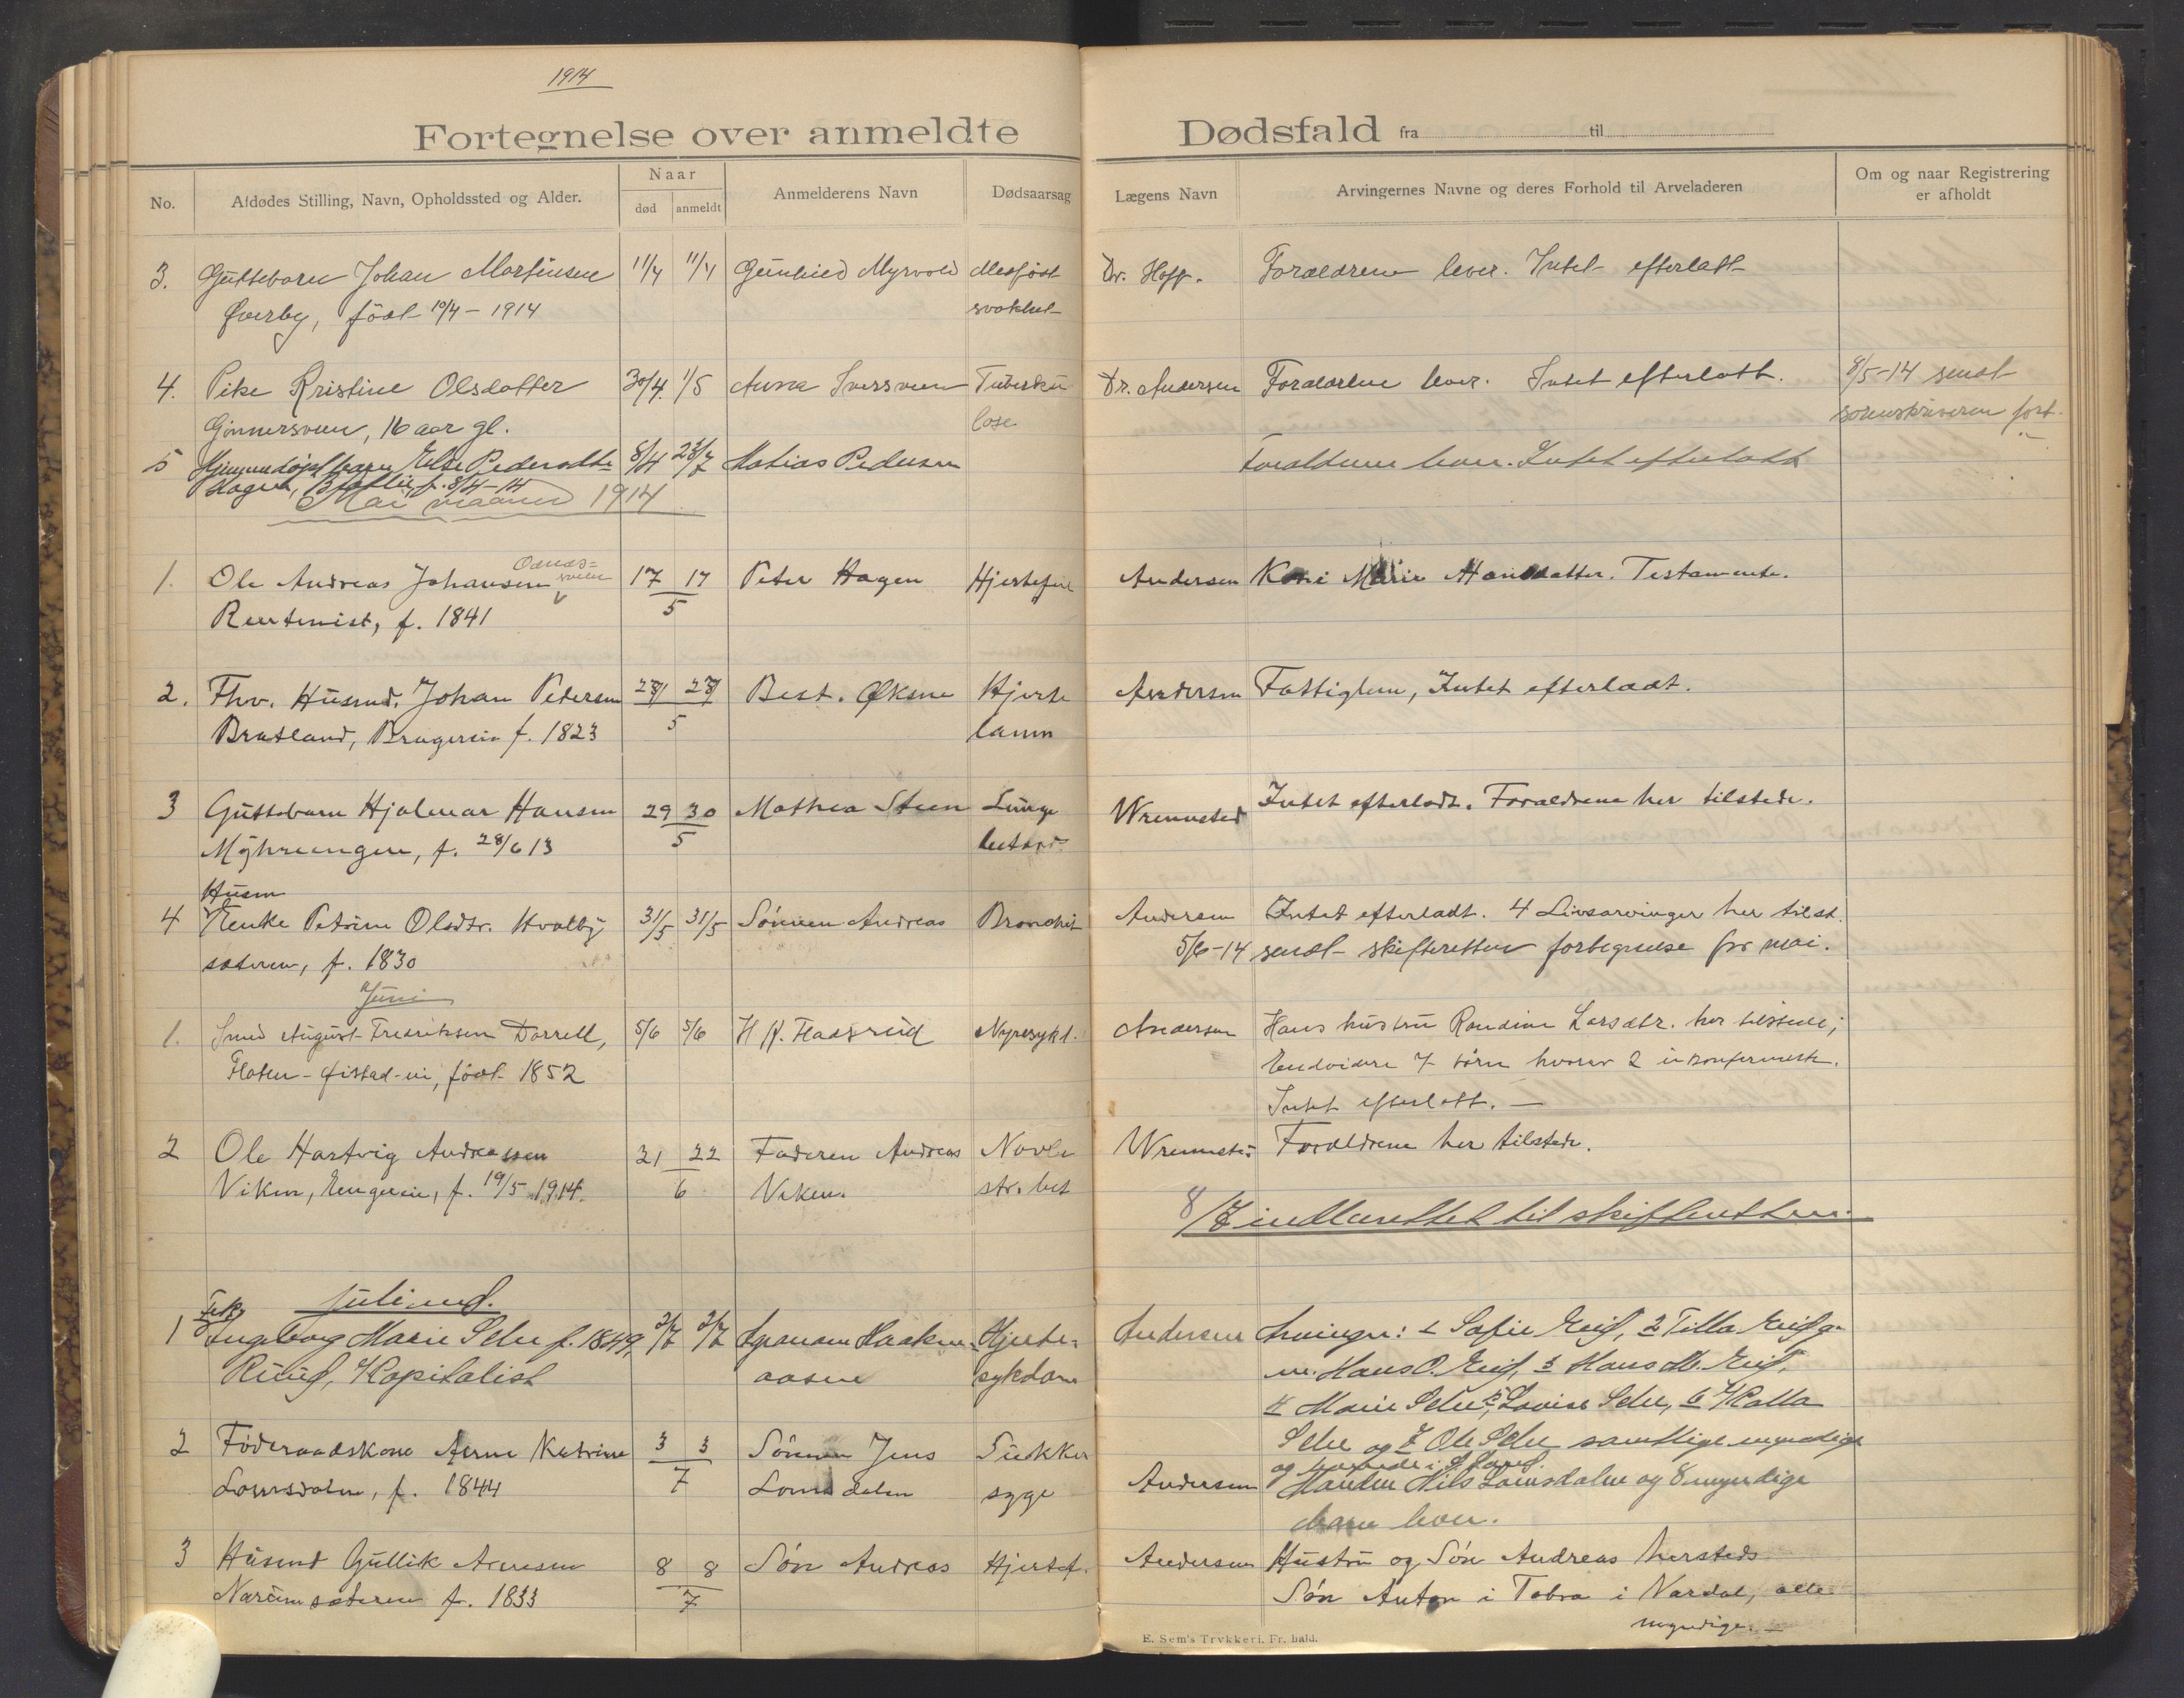 1914
Fortegnelse over anmeldte Dødsfald fra til
No. Afdødes Stilling, Navn, Opholdssted og Alder. Naar død anmeldt Anmelderens Navn Dødsaarsag Lægens Navn Arvingernes Navne og deres Forhold til Arveladeren Om og naar Registrering er afholdt
3. Guttebarn Johan Martinsen 11/4 11/4 Gunhild Myrvold Medfødt Dr. Hoff. Forældrene lever. Intet efterlatt
Øverby, født 10/4 - 1914 svakhet
4. Pike Kristine Olsdatter 30/4 1/5 Anna Iversveen Tuberku Dr. Andersen Forældrene lever. Intet efterlatt. 8/5-14 sendt
Gunnersveen, 16 aar gl. lose sorenskriveren fort.
5 Hjemmedøpt barn Else Pedersdtr 8/4 23/7 Matias Pedersen Forældrene lever. Intet efterlatt
Hagen, f. 8/4-14
Mai maaned 1914
1. Ole Andreas Johansen Odnes-
sveen 17 17 Peter Hagen Hjertefeil Andersen Kone Marie Hansdatter. Testamente.
Rentenist, f. 1841 5
2. Fhv. Husmd. Johan Petersen 27 27 Best. Øksne Hjerte Andersen Fattiglem, Intet efterladt.
Bratland, f. 1823 5 lamm
3 Guttebarn Hjalmar Hansen 29 30 Mathea Steen Lunge Wrennsted Intet efterladt. Forældrene her tilstede.
Myhrengen, f. 28/6 13 5 betænd.
Husm
4 Enke Petrine Olsdtr. Hvalby 31/5 31/5 Sønnen Andreas Bronchit Andersen Intet efterladt. 4 Livsarvinger her tilst.
sæteren, f. 1830 5/6-14 sendt skifteretten fortegnelse for mai.
Juni
1. Smed August Fredriksen Dorrell, 5/6 5/6 H. K. Haasrud Nyresykd. Andersen Hans hustru Rondine Larsdtr. her tilstede;
Floten - Øistad-ei, født 1852 Endvidere 7 børn hvorav 2 ukonfermerte.
Intet efterlatt. —
2 Ole Hartvig Andreassen 21 22 Faderen Andreas Navle Wrennsted Forældrene her tilstede.
Viken, Engerei, f. 19/5 1914. 6 Viken. str. bet
8/7 indberettet til skifteretten.
Juli md.
1 Frk. Ingeborg Marie Selu f. 1849, 2/7 2/7 Haaken- Hjerte- Andersen Arvinger: 1 Sofie Eid, 2 Tilla Eid g.
Ruud, Kapitalist aasen sykdom m. Hans O. Eid, 3 Hans M. Eid,
4 Marie Selu, 5 Lovise Selu, 6 Kalla
Selu og 7 Ole Selu samtlige myndige
og
2 Føderaadskone Anne Katrine 3 3 Sønnen Jens Sukker Andersen Manden Nils Lomsdalen og 8 myndige
Lomsdalen, f. 1844 7 Lomsdalen syge barn lever.
3 Husmd Gullik Arnesen 8 8 Søn Andreas Hjertef. Andersen Hustru og Søn Andreas hersteds
Narumsæteren f. 1833 7 Søn Anton i Tobra i Vardal, alle
myndige. —
E. Sem's Trykkeri, Fr. hald.